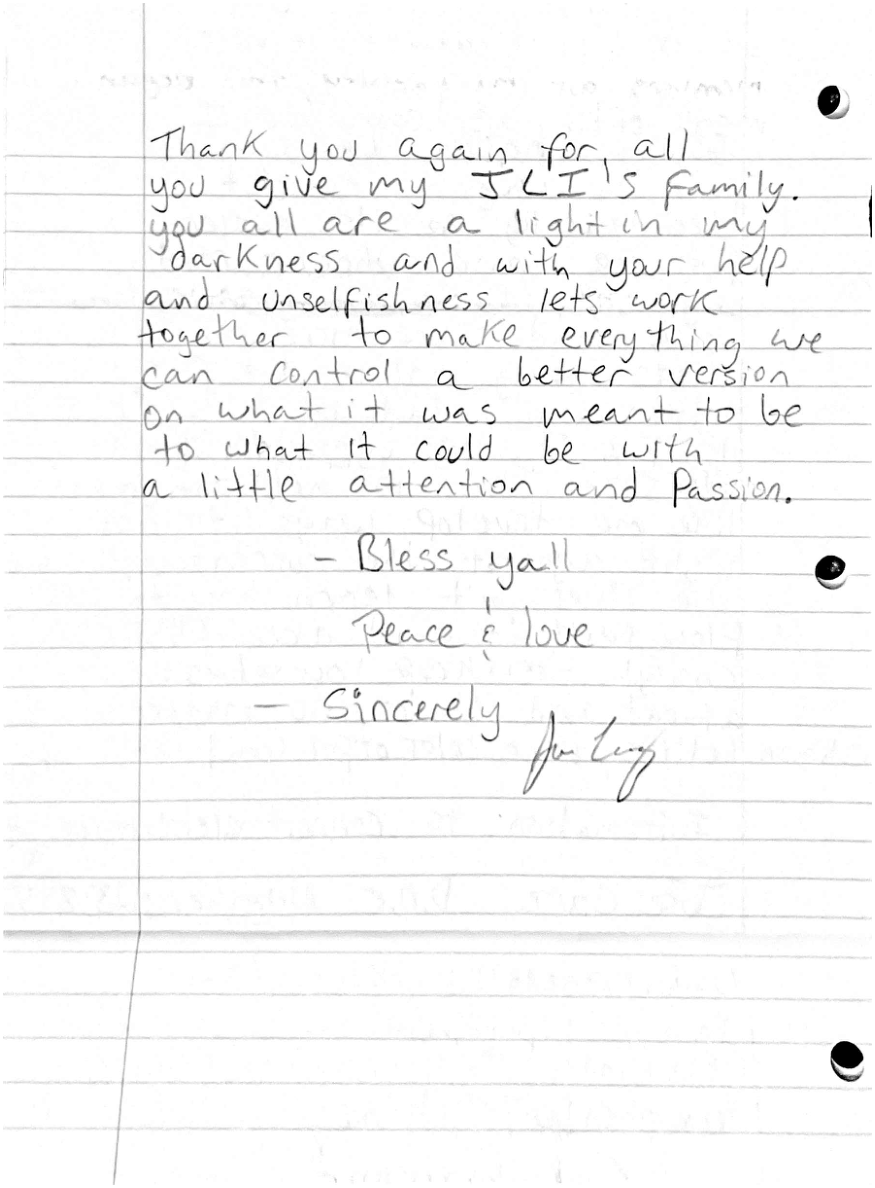 Thank you again for, all
you give my JLI's family.
you all are a light in my
darkness and with your help
and unselfishness lets work
together to make everything we
can control a better version
on what it was meant to be
to what it could be with
a little attention and Passion.
- Bless yall
Peace & love
- Sincerely